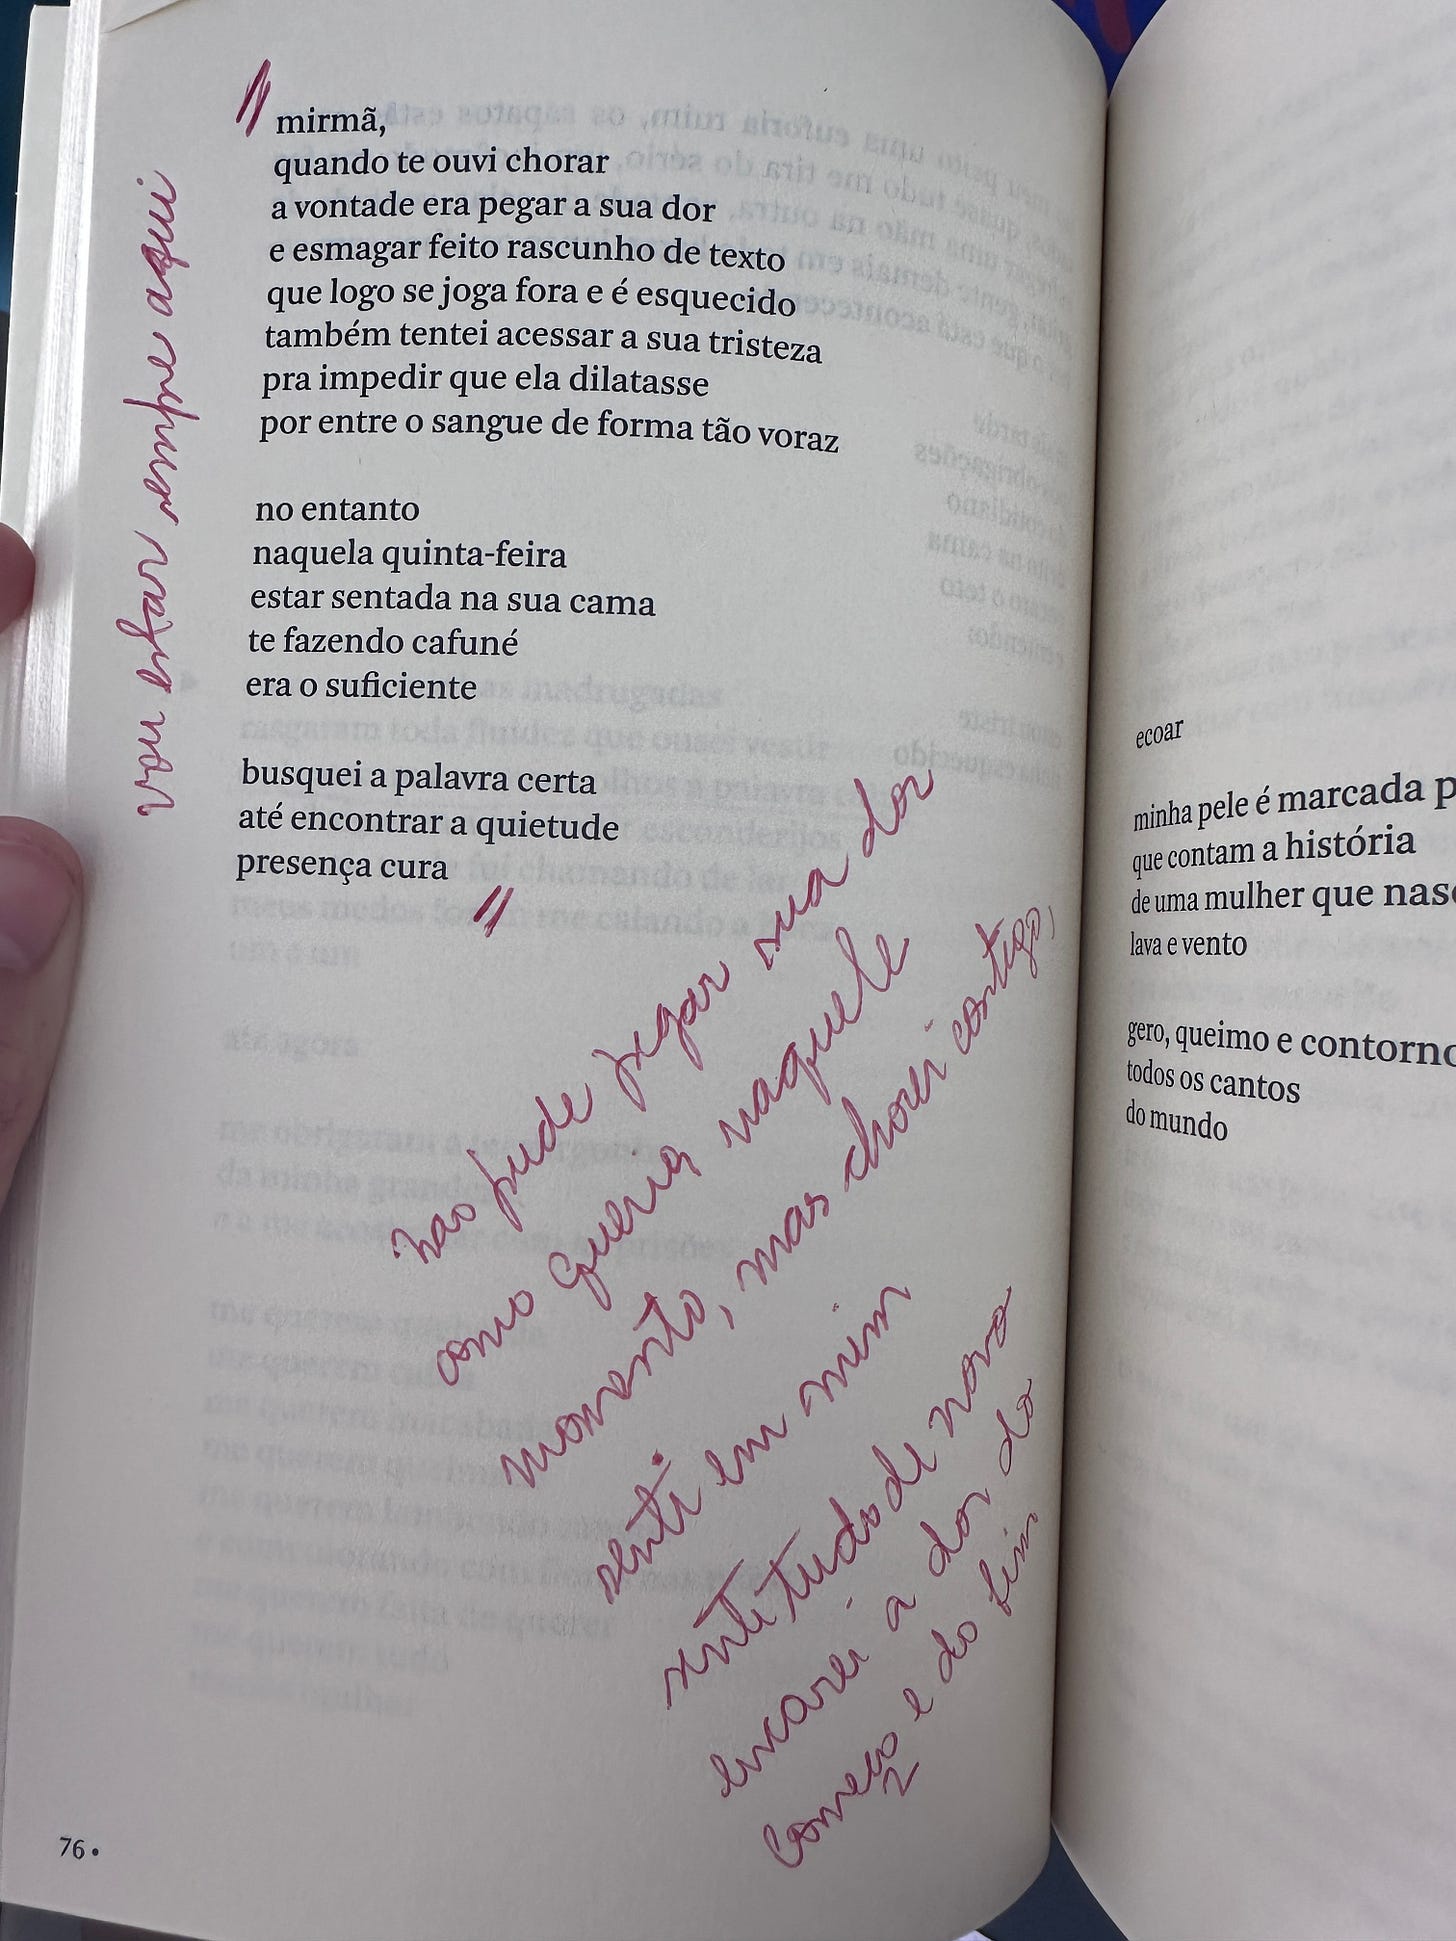 mirmã,
quando te ouvi chorar
a vontade era pegar a sua dor
e esmagar feito rascunho de texto
que logo se joga fora e é esquecido
também tentei acessar a sua tristeza
pra impedir que ela dilatasse
por entre o sangue de forma tão voraz
no entanto
naquela quinta-feira
estar sentada na sua cama
te fazendo cafuné
era o suficiente
busquei a palavra certa
até encontrar a quietude
presença cura
vou estar sempre aqui
não pude pegar sua dor
como queria naquele
momento, mas chorei contigo,
senti em mim
senti tudo de novo
encarei a dor do
começo e do fim
76 •
ecoar
minha pele é marcada p
que contam a história
de uma mulher que nasc
lava e vento
gero, queimo e contorno
todos os cantos
do mundo